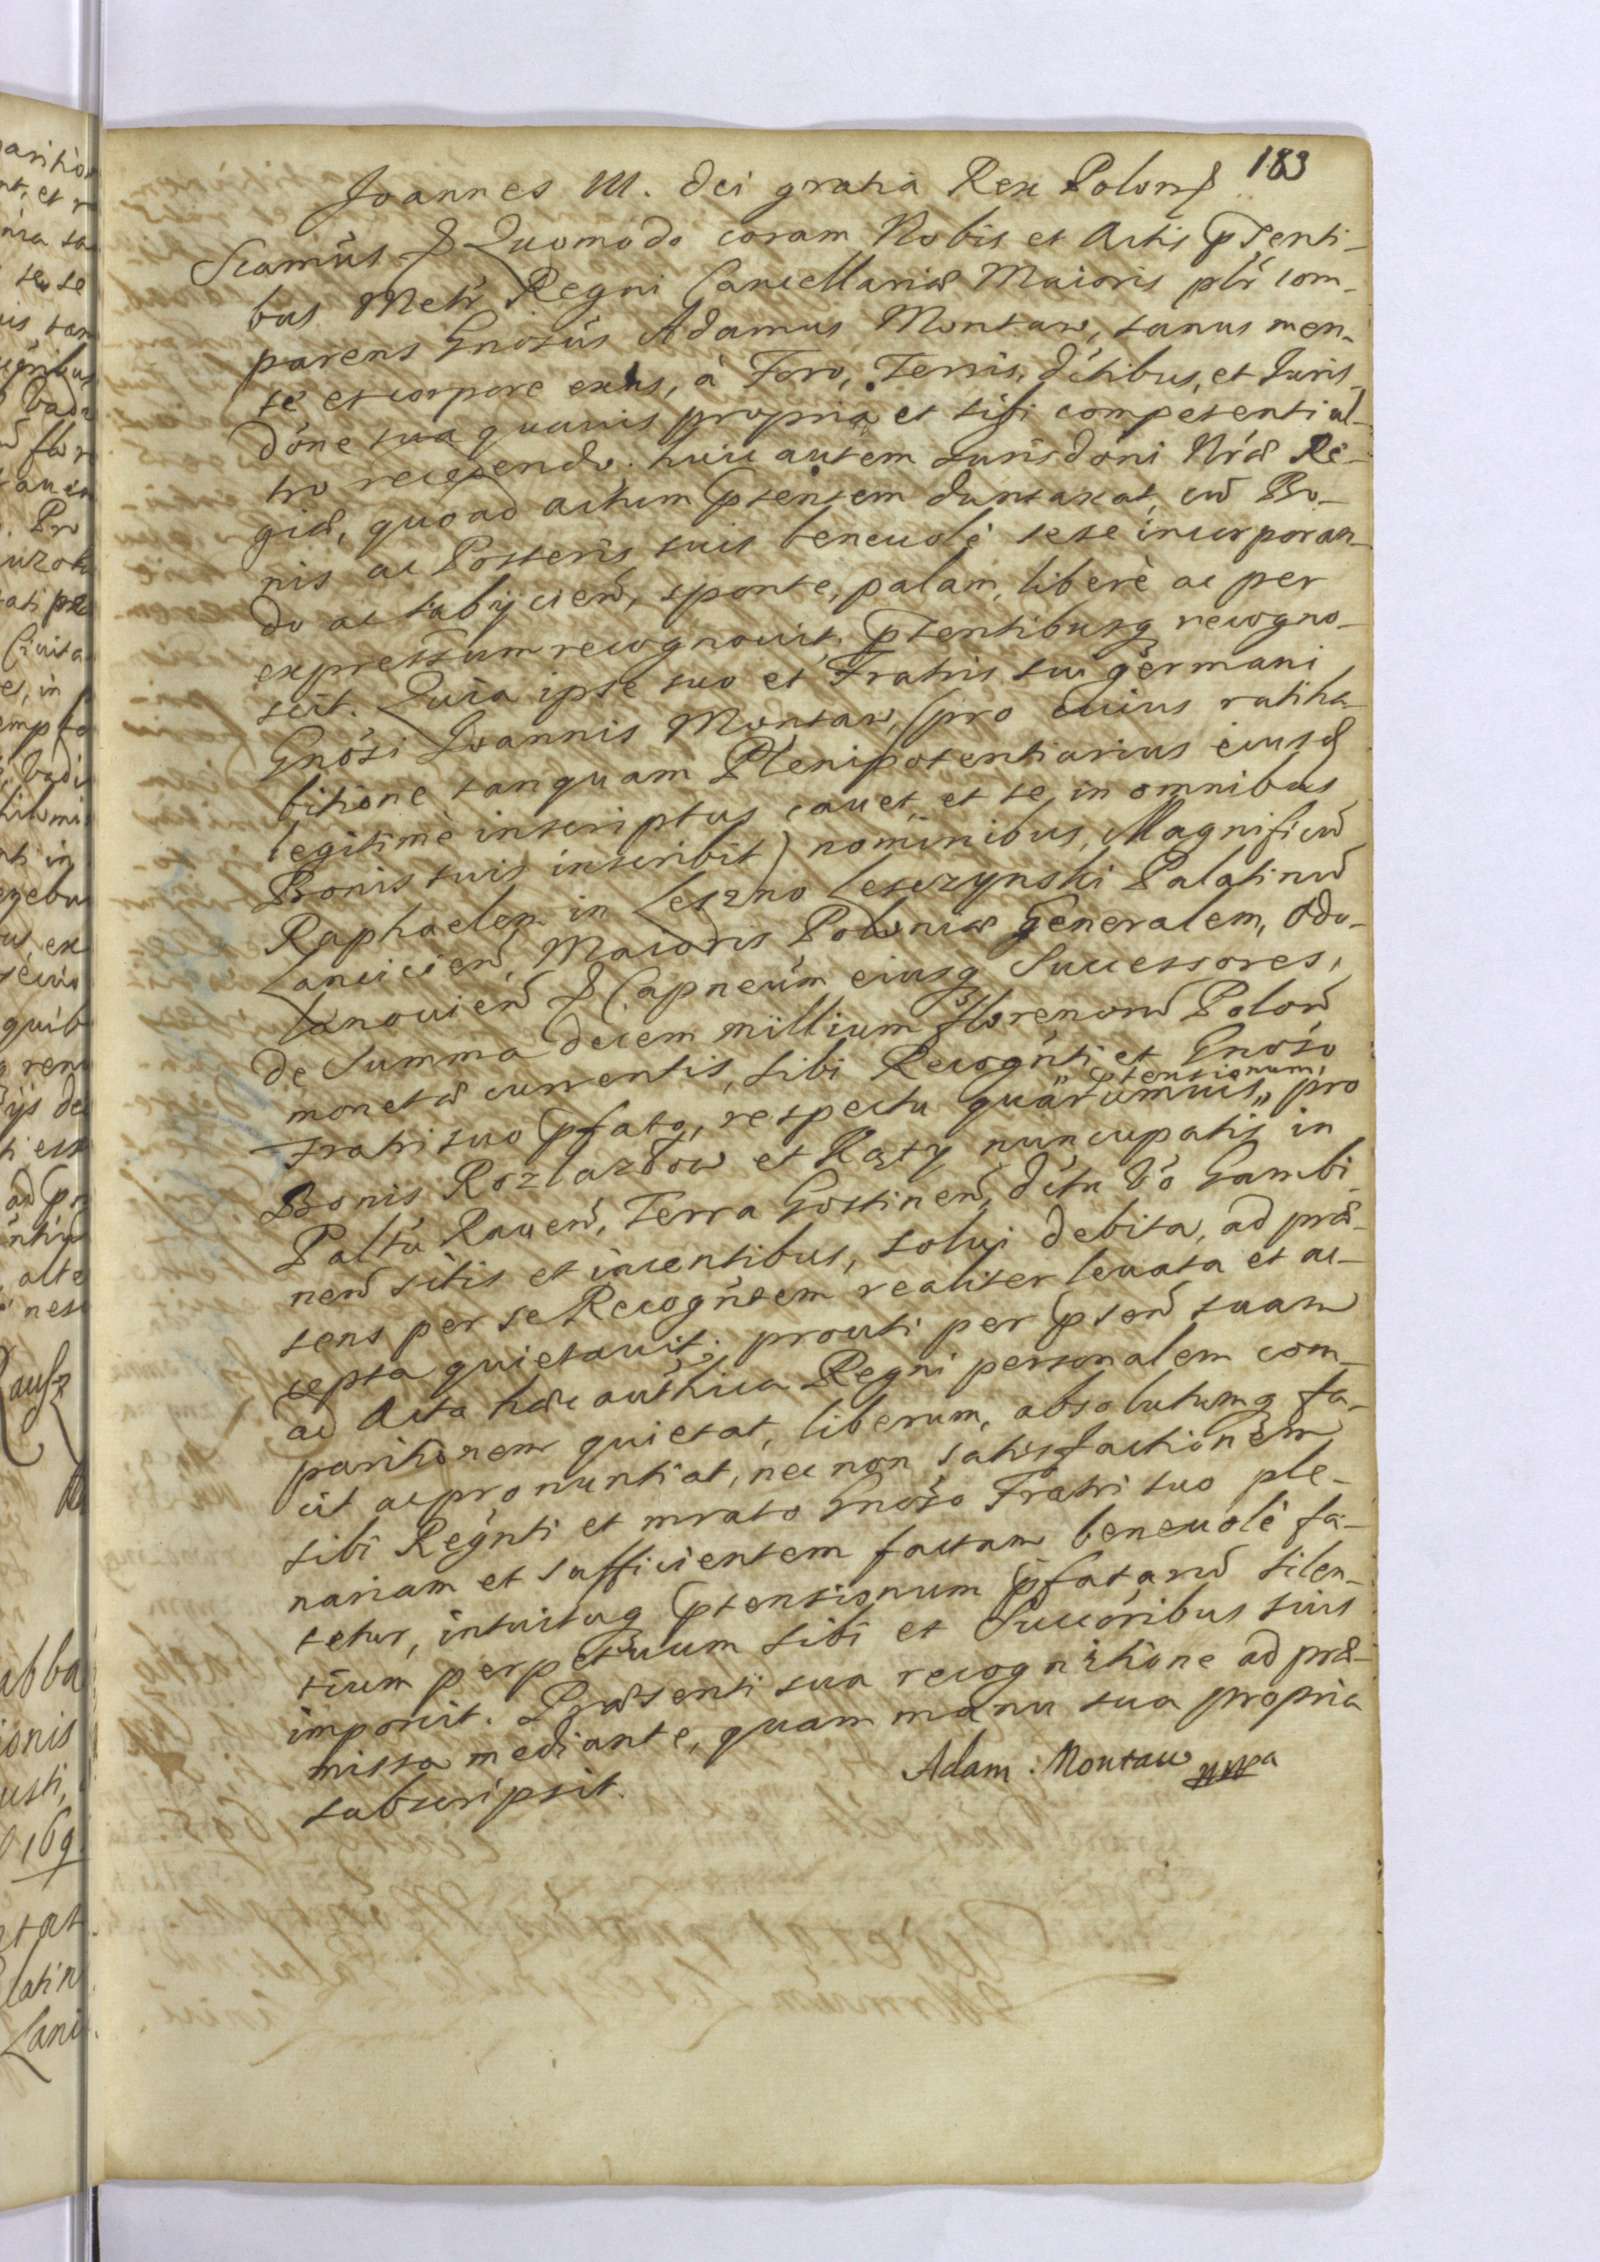 183
Joannes III. Dei gratia Rex Polon &
Scamus & Quomodo coram Nobis et Actis pnsenti-
bus Metr Regni Cancellariæ Maioris plr com-
parens Gnosus Adamus Montaw, sanus men-
te et corpore exns, à Foro, Terris, dctibus, et Juris-
done sua quauis propria et sibi competenti ul-
tro recedendo. huic autem Jurisdoni Nræ Re-
giæ, quoad actum pnsentem duntaxat, cu Bo-
nis ac Posteris suis beneuole sese incorporan-
do ac subijcien, sponte, palam, liberè ac per
expressum recognouit, psentibusq recogno-
scit. Quia ipse suo et Fratris sui germani
Gnosi Joannis Montaw, (pro cuius ratiha-
bitione tanquam Plenipotentiarius eiusd
legitimè inscriptus cauet et se in omnibus
Bonis suis inscribit) nominibus, Magnificu
Raphaelem in Leszno Leszczynski Palatinu
Lancicien, Maioris Poloniæ Generalem, Odo-
lanouien & Capneum eiusq Successores,
de Summa decem millium florenoru Polon
monetæ currentis, sibi Recognti et Gnoso
Fratri suo pfato, respectu quarumuis ptensionum, pro
Bonis Rozlazłow et Kąty nuncupatis in
Paltu Rauen, Terra Gostinen, dctu vo Gambi-
nen sitis et iacentibus, solui debita, ad præ-
sens per se Recogntem realiter leuata et ac-
cepta quietauit: prouti per psen suam
ad Acta hæc authica Regni personalem com-
paritionem quietat, liberum, absolutumq fa-
cit ac pronuntiat, nec non satisfactionem
sibi Regnti et mrato Gnoso Fratri suo ple-
nariam et sufficientem factam beneuolè fa-
tetur, intuituq ptensionum pfataru silen-
tium perpetuum sibi et Succoribus suis
imponit. Præsenti sua recognitione ad præ-
missa mediante, quam manu sua propria
subscripsit.
Adam: Montaw mpa